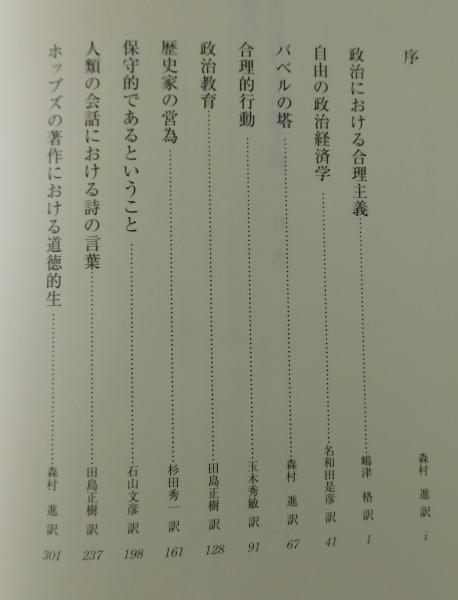 序 森村 進 訳 i
政治における合理主義 嶋津 格 訳 1
自由の政治経済学 名和田是彦 訳 41
バベルの塔 森村 進 訳 67
合理的行動 玉木秀敏 訳 91
政治教育 田島正樹 訳 128
歴史家の営為 杉田秀一 訳 161
保守的であるということ 石山文彦 訳 198
人類の会話における詩の言葉 田島正樹 訳 237
ホッブズの著作における道徳的生 森村 進 訳 301